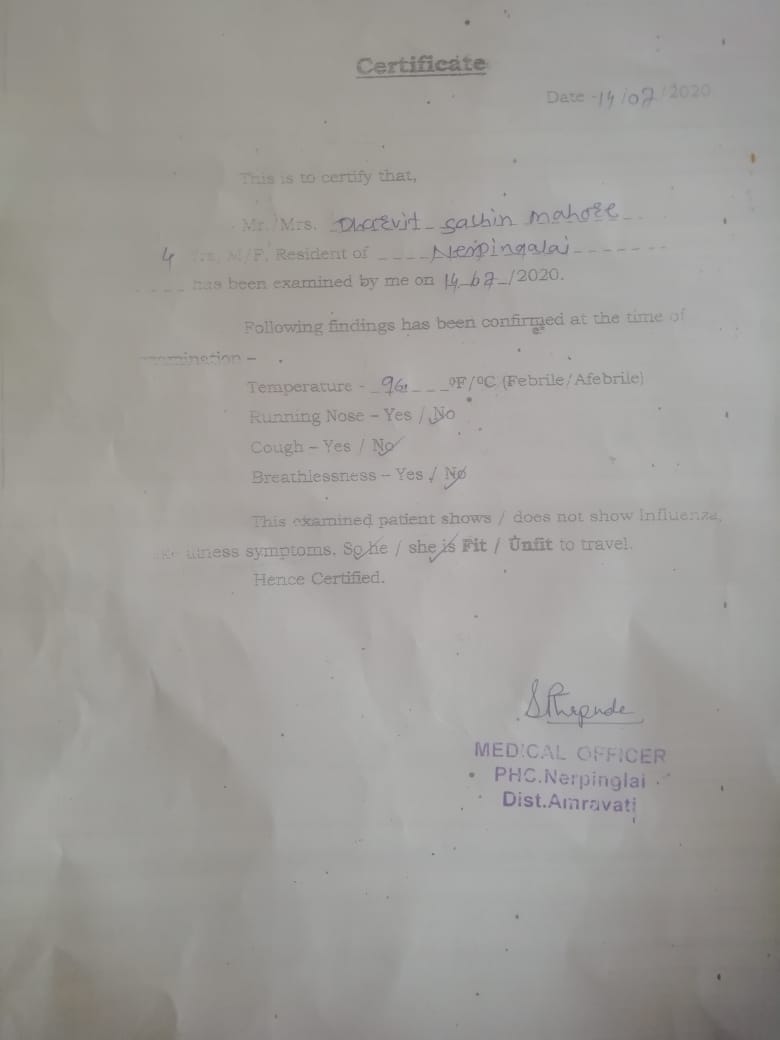 Certificate
Date -14/07/2020
This is to certify that,
Mr./Mrs. sachin mahore
4 Yrs, M/F, Resident of Nerpingalai
has been examined by me on 14 07 /2020.
Following findings has been confirmed at the time of
examination –
Temperature - °F/°C (Febrile/Afebrile)
Running Nose – Yes / No
Cough – Yes / No
Breathlessness – Yes / No
This examined patient shows / does not show Influenza,
like illness symptoms. So he / she is Fit / Unfit to travel.
Hence Certified.
MEDICAL OFFICER
PHC.Nerpinglai
Dist.Amravati